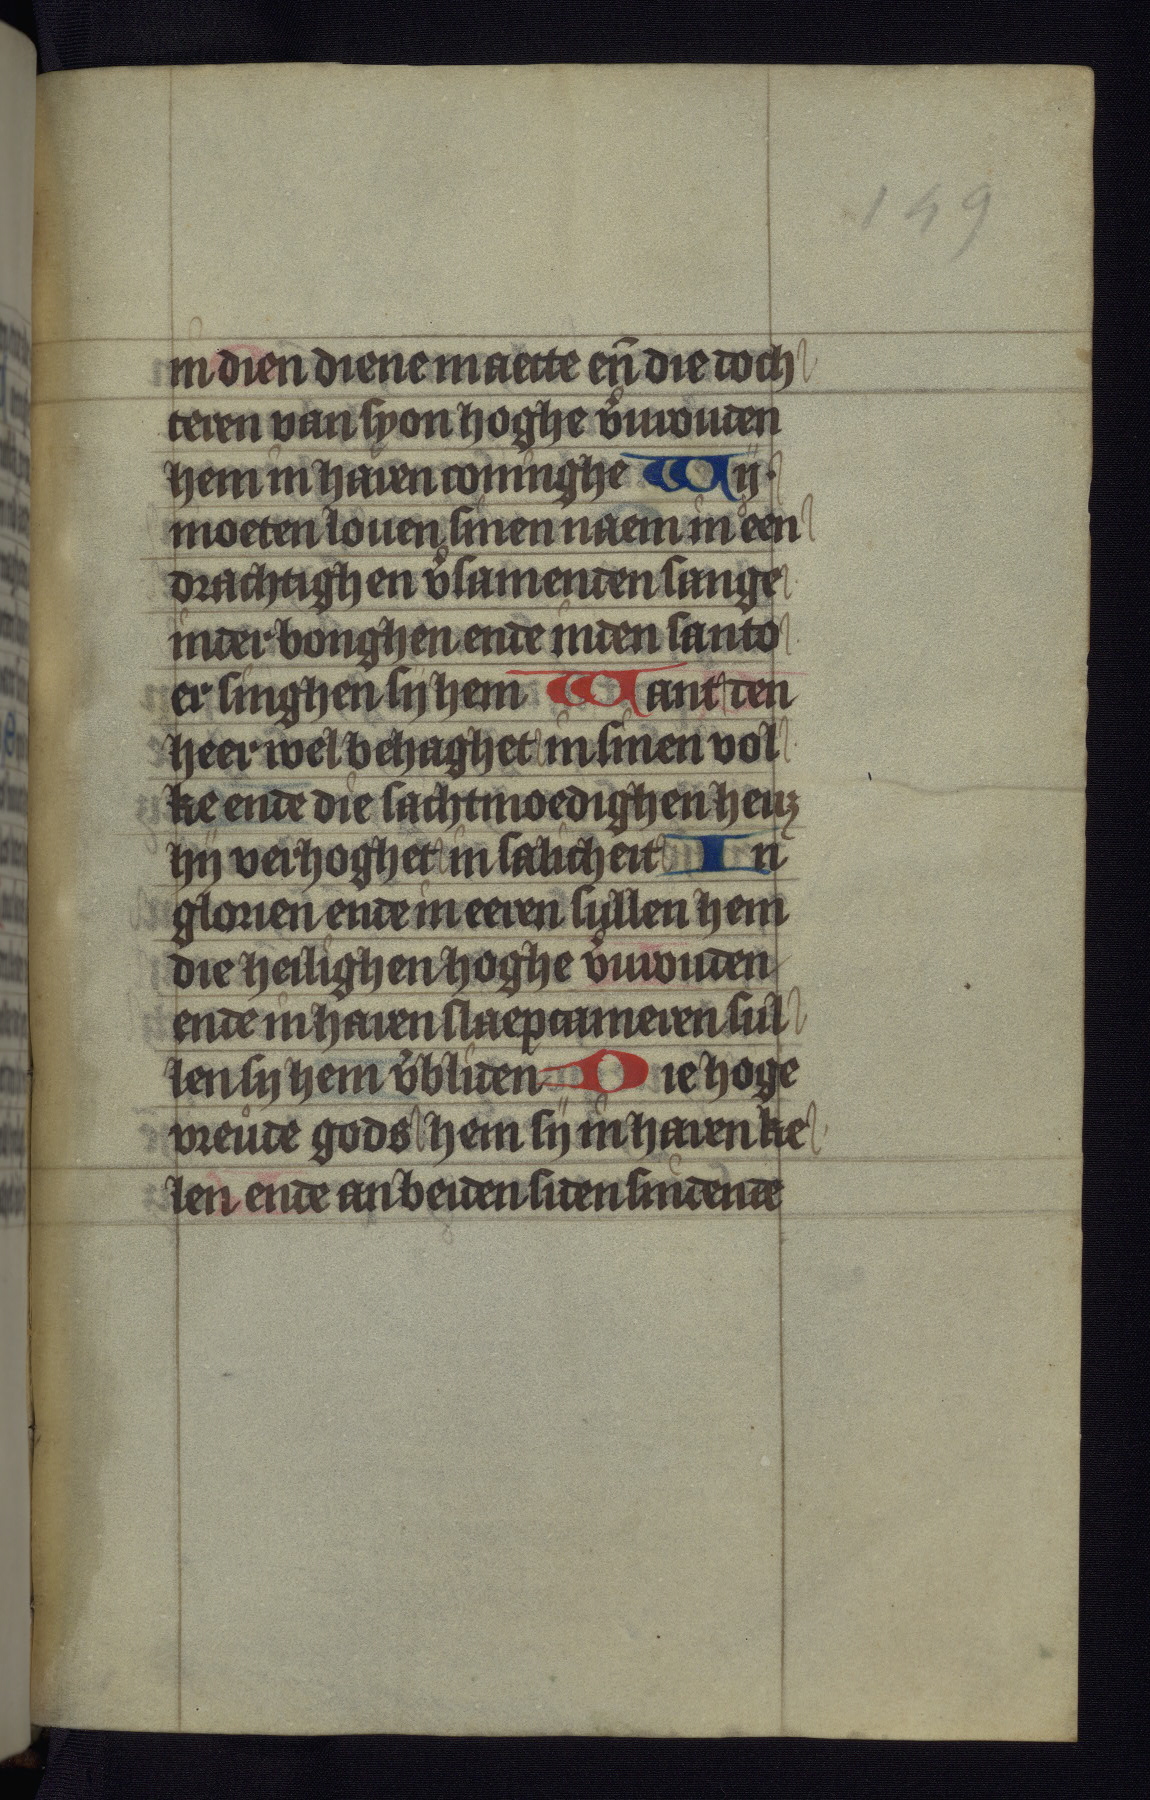 149
in dien diene maecte en̄ die doch
teren van syon hoghe v̓urouden
hem in haren coninghe Wij
moeten louen sinen naem in een
drachtighen v̓samenden sange
inder bonghen ende inden santo
er singhen sij hem Want den
heer wel behaghet in sinen vol
ke ende die sachtmoedighen
hij verhoghet in salicheit In
glorien ende in eeren sullen hem
die heilighen hoghe v̓urouden
ende in haren slaepcameren sul
len sij hem v̓bliden Die hoge
vreude gods hem sij in haren ke
len ende an beiden siden snidende